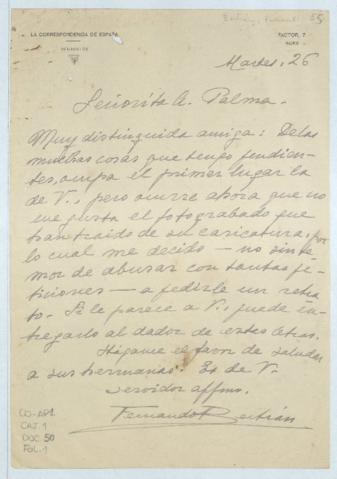 55
LA CORRESPONDENCIA DE ESPAÑA
FACTOR, 7
Martes, 26
Señorita A. Palma.
Muy distinguida amiga: De las
muchas cosas que tengo pendien-
tes, ocupa el primer lugar la
de V., pero ocurre ahora que no
me gusta el fotograbado que
han traido de su caricatura, por
lo cual me decido — no sin te-
mor de abusar con tantas pe-
ticiones — a pedirle un retra-
to. Si le parece a V., puede en-
tregarlo al dador de estas letras.
Hágame el favor de saludar
a sus hermanas. Es de V.
servidor affmo.
Fernando
CO-AP1.
CAJ 1
DOC 50
FOL. 1